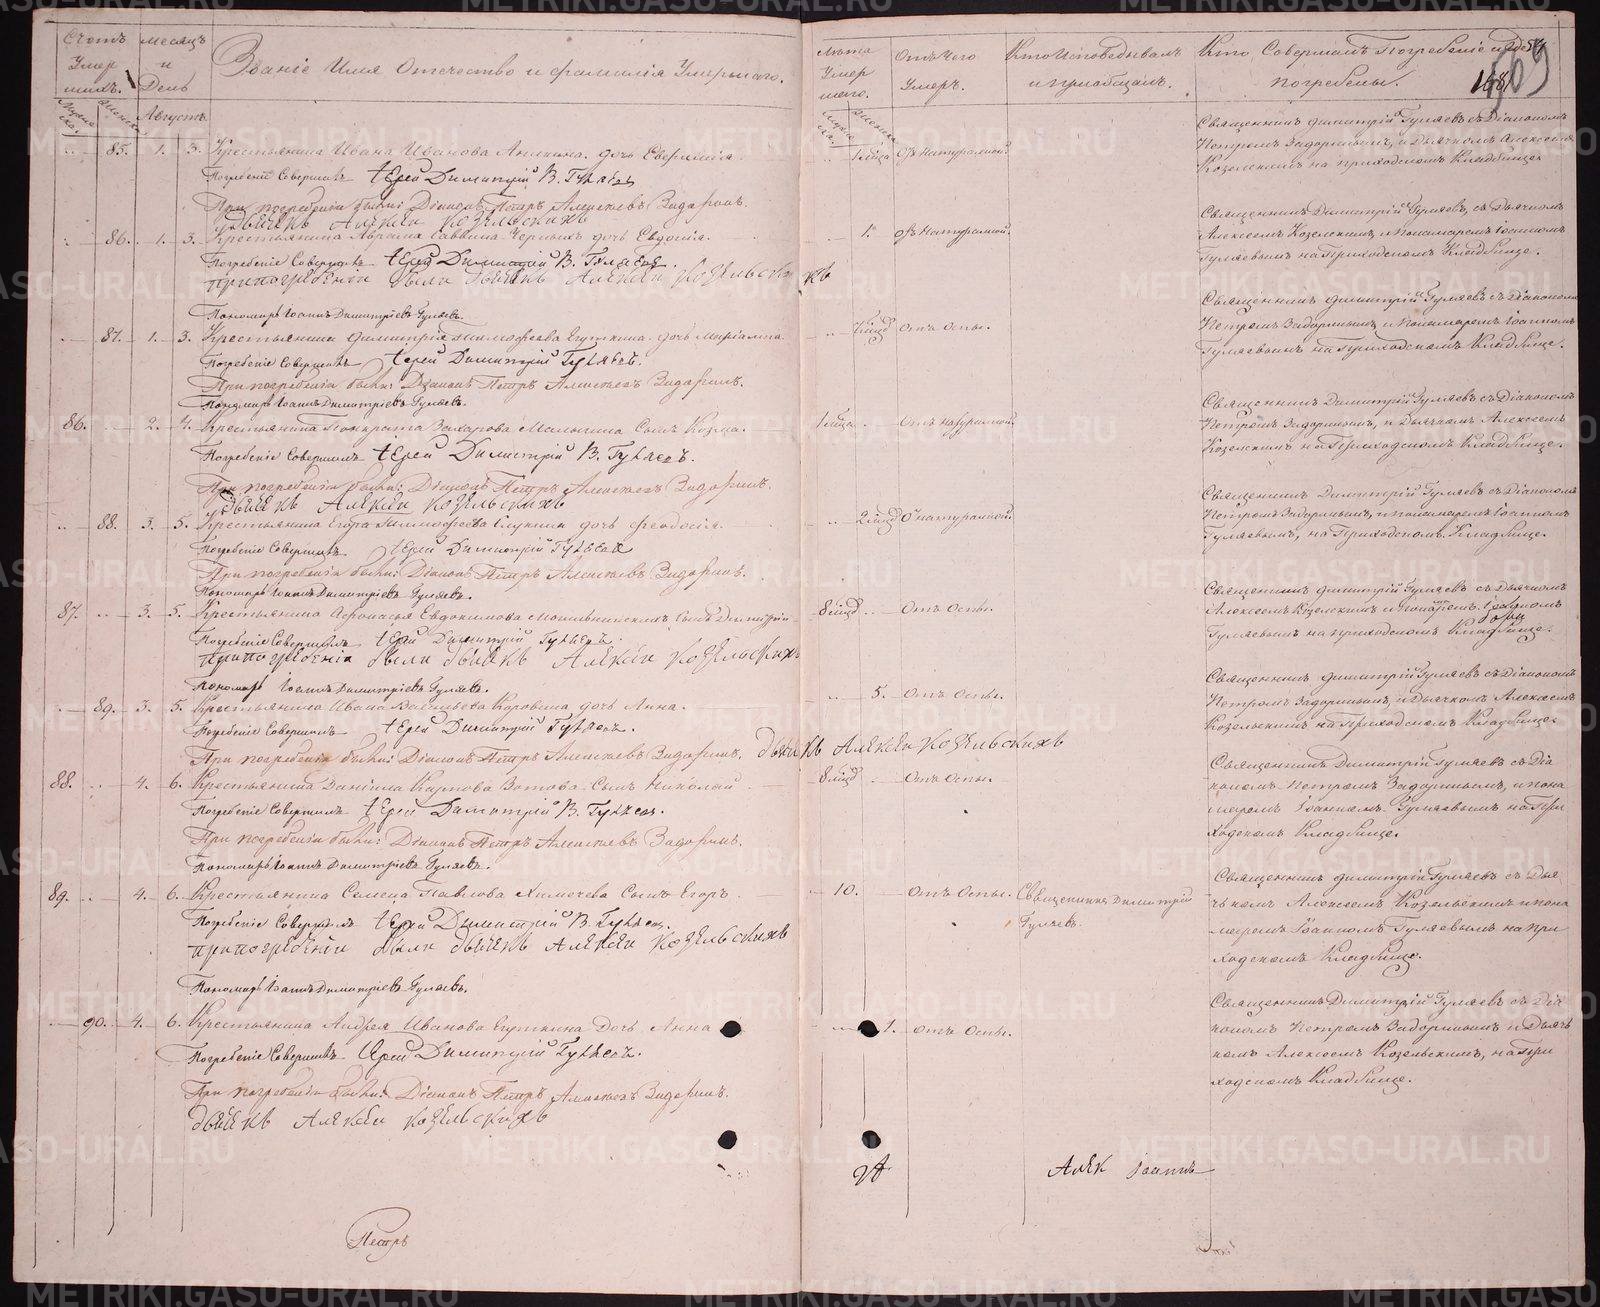 Счетъ Умершихъ.
Мужеска.
Женска
Месяцъ и День
Августъ.
Званіе Имя Отечество и фамилія Умершаго.
85. 1. 3. Крестьянина Ивана Иванова Аникина дочь Евфимія.
Погребеніе Совершалъ Іерей Димитрій В. Гуляевъ
При погребеніи были: Діаконъ Петръ Алексеевъ Задоринъ.
дьячекъ Алексеи Козельскихъ
86. 1. 3. Крестьянина Аврама Саввина Черныхъ дочь Евдокія.
Погребеніе Совершалъ Іерей Димитрій В. Гуляевъ.
припогребеніи были дьячекъ Алексеи Козельскихъ
Пономарь Іоаннъ Димитріевъ Гуляевъ.
87. 1. 3. Крестьянина Димитрія Тимофеева дочь
Погребеніе Совершалъ Іерей Димитрій Гуляевъ.
При погребеніи были: Діаконъ Петръ Алексеевъ Задоринъ.
Пономарь Іоаннъ Димитріевъ Гуляевъ.
86. 2. 4. Крестьянина Панкрата Захарова Сынъ Козма.
Погребеніе Совершалъ Іерей Димитрій В. Гуляевъ.
При погребеніи были: Діаконъ Петръ Алексеевъ Задоринъ.
дьячекъ Алексеи Козельскихъ
88. 3. 5. Крестьянина Егора Тимофеева дочь Феодосія.
Погребеніе Совершалъ Іерей Димитрій Гуляевъ
При погребеніи были: Діаконъ Петръ Алексеевъ Задоринъ.
Пономарь Іоаннъ Димитріевъ Гуляевъ.
87. 3. 5. Крестьянина Афонасья Евдокимова сынъ Димитрій
Погребеніе Совершалъ Іерей Димитрій Гуляевъ.
припогребеніи были дьячекъ Алексеи Козельскихъ
Пономарь Іоаннъ Димитріевъ Гуляевъ.
89. 3. 5. Крестьянина Ивана Васильева Коровина дочь Анна.
Погребеніе Совершалъ Іерей Димитрій Гуляевъ.
При погребеніи были: Діаконъ Петръ Алексеевъ Задоринъ. дьячекъ Алексеи Козельскихъ
88. 4. 6. Крестьянина Даніила Карпова Зотова Сынъ Николай
Погребеніе Совершалъ Іерей Димитрій В. Гуляевъ.
При погребеніи были: Діаконъ Петръ Алексеевъ Задоринъ.
Пономарь Іоаннъ Димитріевъ Гуляевъ.
89. 4. 6. Крестьянина Павлова Сынъ Егоръ.
Погребеніе Совершалъ Іерей Димитрій В. Гуляевъ.
припогребеніи были дьячекъ Алексеи Козельскихъ
Пономарь Іоаннъ Димитріевъ Гуляевъ.
90. 4. 6. Крестьянина Андрея Иванова Дочь Анна
Погребеніе Совершалъ Іерей Димитрій Гуляевъ.
При погребеніи были: Діаконъ Петръ Алексеевъ Задоринъ.
дьячекъ Алексеи Козельскихъ
Петръ
Лѣта Умершаго.
Отъ Чего Умеръ.
Кто Исповедывалъ и приобщалъ.
Кто Совершалъ Погребеніе и где погребены.
Священникъ Димитрій Гуляевъ съ Діакономъ
Петромъ Задоринымъ, и Дьячкомъ Алексеемъ
Козельскимъ на приходскомъ Кладбище
1. отъ Натуральной.
Священникъ Димитрій Гуляевъ, съ Дьячкомъ
Алексеемъ Козельскимъ, и Пономаремъ Іоанномъ
Гуляевымъ на Приходскомъ Кладбище.
отъ Оспы.
Священникъ Димитрій Гуляевъ съ Діакономъ
Петромъ Задоринымъ, и Пономаремъ Іоанномъ
Гуляевымъ, на Приходскомъ Кладбище.
отъ натуральной.
Священникъ Димитрій Гуляевъ съ Діакономъ
Петромъ Задоринымъ, и Дьячкомъ Алексеемъ
Козельскимъ на Приходскомъ Кладбище.
Священникъ Димитрій Гуляевъ съ Діакономъ
Петромъ Задоринымъ, и пономаремъ Іоанномъ
Гуляевымъ, на Приходскомъ Кладбище.
Отъ Оспы.
Священникъ Димитрій Гуляевъ съ Дьячкомъ
Алексеемъ Козельскимъ и Пономаремъ Іоанномъ
Гуляевымъ на приходскомъ Кладбище.
5. Отъ Оспы.
Священникъ Димитрій Гуляевъ съ Діакономъ
Петромъ Задоринымъ, и дьячкомъ Алексеемъ
Козельскимъ на Приходскомъ Кладбище.
Отъ Оспы.
Священникъ Димитрій Гуляевъ съ Діа
кономъ Петромъ Задоринымъ, и поно
маремъ Іоанномъ Гуляевымъ на При
ходскомъ Кладбище.
10. Отъ Оспы. Священникъ Димитрій
Гуляевъ.
Священникъ Димитрій Гуляевъ съ Дья
чкомъ Алексеемъ Козельскимъ и поно
маремъ Іоанномъ Гуляевымъ на при
ходскомъ Кладбище.
1. отъ Оспы.
Священникъ Димитрій Гуляевъ съ Діа
кономъ Петромъ Задоринымъ и Дьяч
комъ Алексеемъ Козельскимъ, на При
ходскомъ Кладбище.
Алек Іоаннъ
METRIKI.GASO-URAL.RU